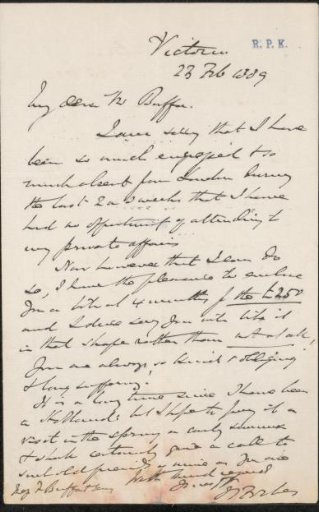 Victoria R.P.K.
23 Feb 1889
My dear Mr Buffa.
I am sorry that I have
been so much engaged & so
much absent from London during
the last 2 or 3 weeks that I have
had no opportunity of attending to
my private affairs
Now however that I can do
so, I have the pleasure to enclose
you a bill at 4 months for the £250
and I dare say you will like it
in that shape rather than
you are always so kind & obliging
& long suffering.
It is a long time since I have been
in Holland: but I hope to pay it a
visit in the spring or early summer
& shall certainly give a call to
such old friends as you are
With kind regards